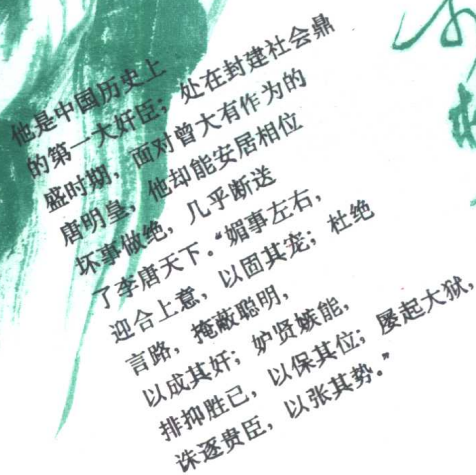 他是中国历史上
的第一大奸臣；处在封建社会鼎
盛时期，面对曾大有作为的
唐明皇，他却能安居相位
坏事做绝，几乎断送
了李唐天下。“媚事左右，
迎合上意，以固其宠；杜绝
言路，掩蔽聪明，
以成其奸；妒贤嫉能，
排抑胜己，以保其位；屡起大狱，
诛逐贵臣，以张其势。”